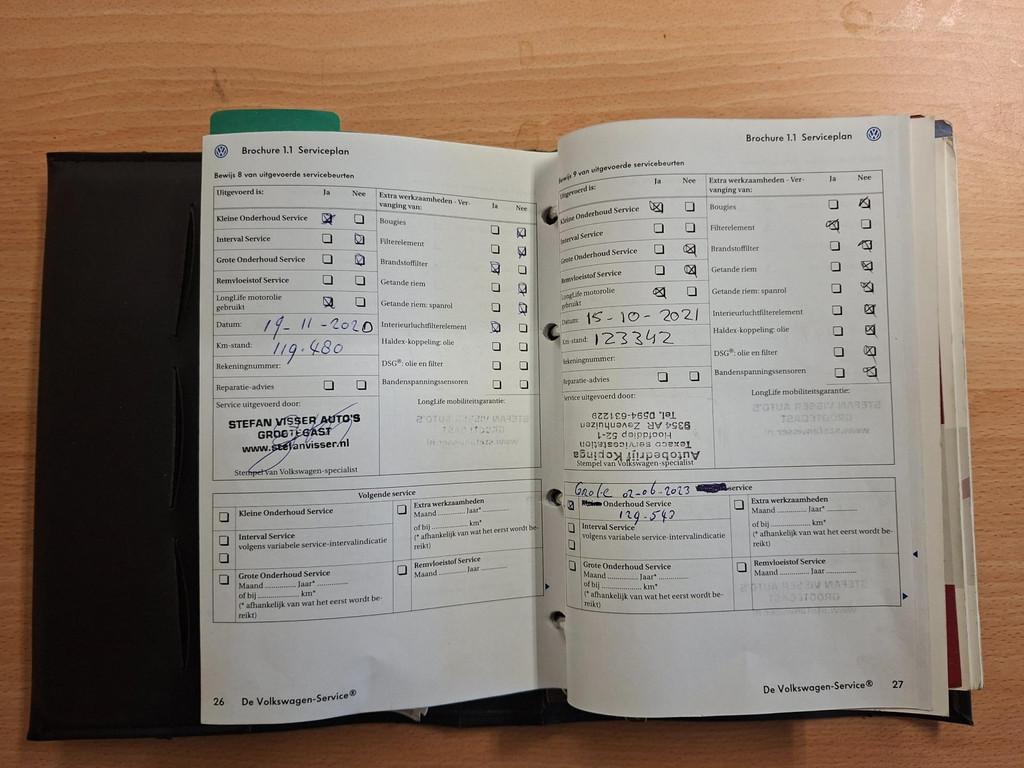 Brochure 1.1 Serviceplan
Bewijs 8 van uitgevoerde servicebeurten
Uitgevoerd is: Ja Nee
Kleine Onderhoud Service
Interval Service
Grote Onderhoud Service
Remvloeistof Service
LongLife motorolie
gebruikt
Datum: 19-11-2020
Km-stand: 119.480
Rekeningnummer:
Reparatie-advies
Service uitgevoerd door:
STEFAN VISSER AUTO'S
GROOTEGAST
www.stefanvisser.nl
Stempel van Volkswagen-specialist
Extra werkzaamheden - Ver-
vanging van: Ja Nee
Bougies
Filterelement
Brandstoffilter
Getande riem
Getande riem: spanrol
Interieurluchtfilterelement
Haldex-koppeling: olie
DSG®: olie en filter
Bandenspanningssensoren
LongLife mobiliteitsgarantie:
Volgende service
Kleine Onderhoud Service
Interval Service
volgens variabele service-intervalindicatie
Grote Onderhoud Service
Maand ............ Jaar* ............
of bij ............ km*
(* afhankelijk van wat het eerst wordt be-
reikt)
Extra werkzaamheden
Maand ............ Jaar* ............
of bij ............ km*
(* afhankelijk van wat het eerst wordt be-
reikt)
Remvloeistof Service
Maand ............ Jaar ............
26 De Volkswagen-Service®
Brochure 1.1 Serviceplan
Bewijs 9 van uitgevoerde servicebeurten
Uitgevoerd is: Ja Nee
Kleine Onderhoud Service
Interval Service
Grote Onderhoud Service
Remvloeistof Service
LongLife motorolie
gebruikt
Datum: 15-10-2021
Km-stand: 123342
Rekeningnummer:
Reparatie-advies
Service uitgevoerd door:
Autobedrijf Kopinga
Texaco servicestation
Hoofddiep 52-1
9354 AR Zevenhuizen
Tel. 0594-631229
Stempel van Volkswagen-specialist
Extra werkzaamheden - Ver-
vanging van: Ja Nee
Bougies
Filterelement
Brandstoffilter
Getande riem
Getande riem: spanrol
Interieurluchtfilterelement
Haldex-koppeling: olie
DSG®: olie en filter
Bandenspanningssensoren
LongLife mobiliteitsgarantie:
Grote 02-06-2023 service
Onderhoud Service
129-543
Interval Service
volgens variabele service-intervalindicatie
Grote Onderhoud Service
Maand ............ Jaar* ............
of bij ............ km*
(* afhankelijk van wat het eerst wordt be-
reikt)
Extra werkzaamheden
Maand ............ Jaar* ............
of bij ............ km*
(* afhankelijk van wat het eerst wordt be-
reikt)
Remvloeistof Service
Maand ............ Jaar ............
De Volkswagen-Service® 27